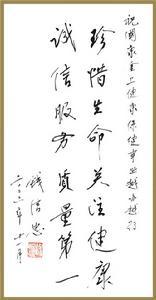 祝國上健康保健事业越办越好
珍惜生命关注健康
诚信服务质量第一
钱信忠
年十一月